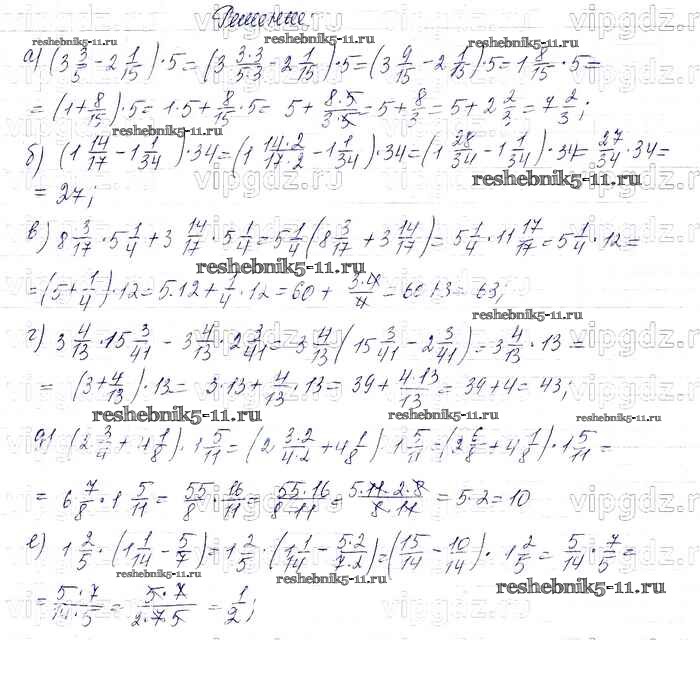 Решение:
а) (3 3/5 - 2 1/15) · 5 = (3 3·3/5·3 - 2 1/15) · 5 = (3 9/15 - 2 1/15) · 5 = 1 8/15 · 5 =
= (1 + 8/15) · 5 = 1·5 + 8/15 · 5 = 5 + 8·5/3·5 = 5 + 8/3 = 5 + 2 2/3 = 7 2/3;
б) (1 14/17 - 1 1/34) · 34 = (1 14·2/17·2 - 1 1/34) · 34 = (1 28/34 - 1 1/34) · 34 = 27/34 · 34 =
= 27;
в) 8 3/17 · 5 1/4 + 3 14/17 · 5 1/4 = 5 1/4 (8 3/17 + 3 14/17) = 5 1/4 · 11 17/17 = 5 1/4 · 12 =
= (5 + 1/4) · 12 = 5·12 + 1/4 · 12 = 60 + 3·4/4 = 60 + 3 = 63;
г) 3 4/13 · 15 3/41 - 3 4/13 · 2 3/41 = 3 4/13 (15 3/41 - 2 3/41) = 3 4/13 · 13 =
= (3 + 4/13) · 13 = 3·13 + 4/13 · 13 = 39 + 4·13/13 = 39 + 4 = 43;
д) (2 3/4 + 4 1/8) · 1 5/11 = (2 3·2/4·2 + 4 1/8) · 1 5/11 = (2 6/8 + 4 1/8) · 1 5/11 =
= 6 7/8 · 1 5/11 = 55/8 · 16/11 = 55·16/8·11 = 5·11·2·8/8·11 = 5·2 = 10
е) 1 2/5 · (1 1/14 - 5/7) = 1 2/5 · (1 1/14 - 5·2/7·2) = (15/14 - 10/14) · 1 2/5 = 5/14 · 7/5 =
= 5·7/14·5 = 5·7/2·7·5 = 1/2;
vipgdz.ru
reshebnik5-11.ru